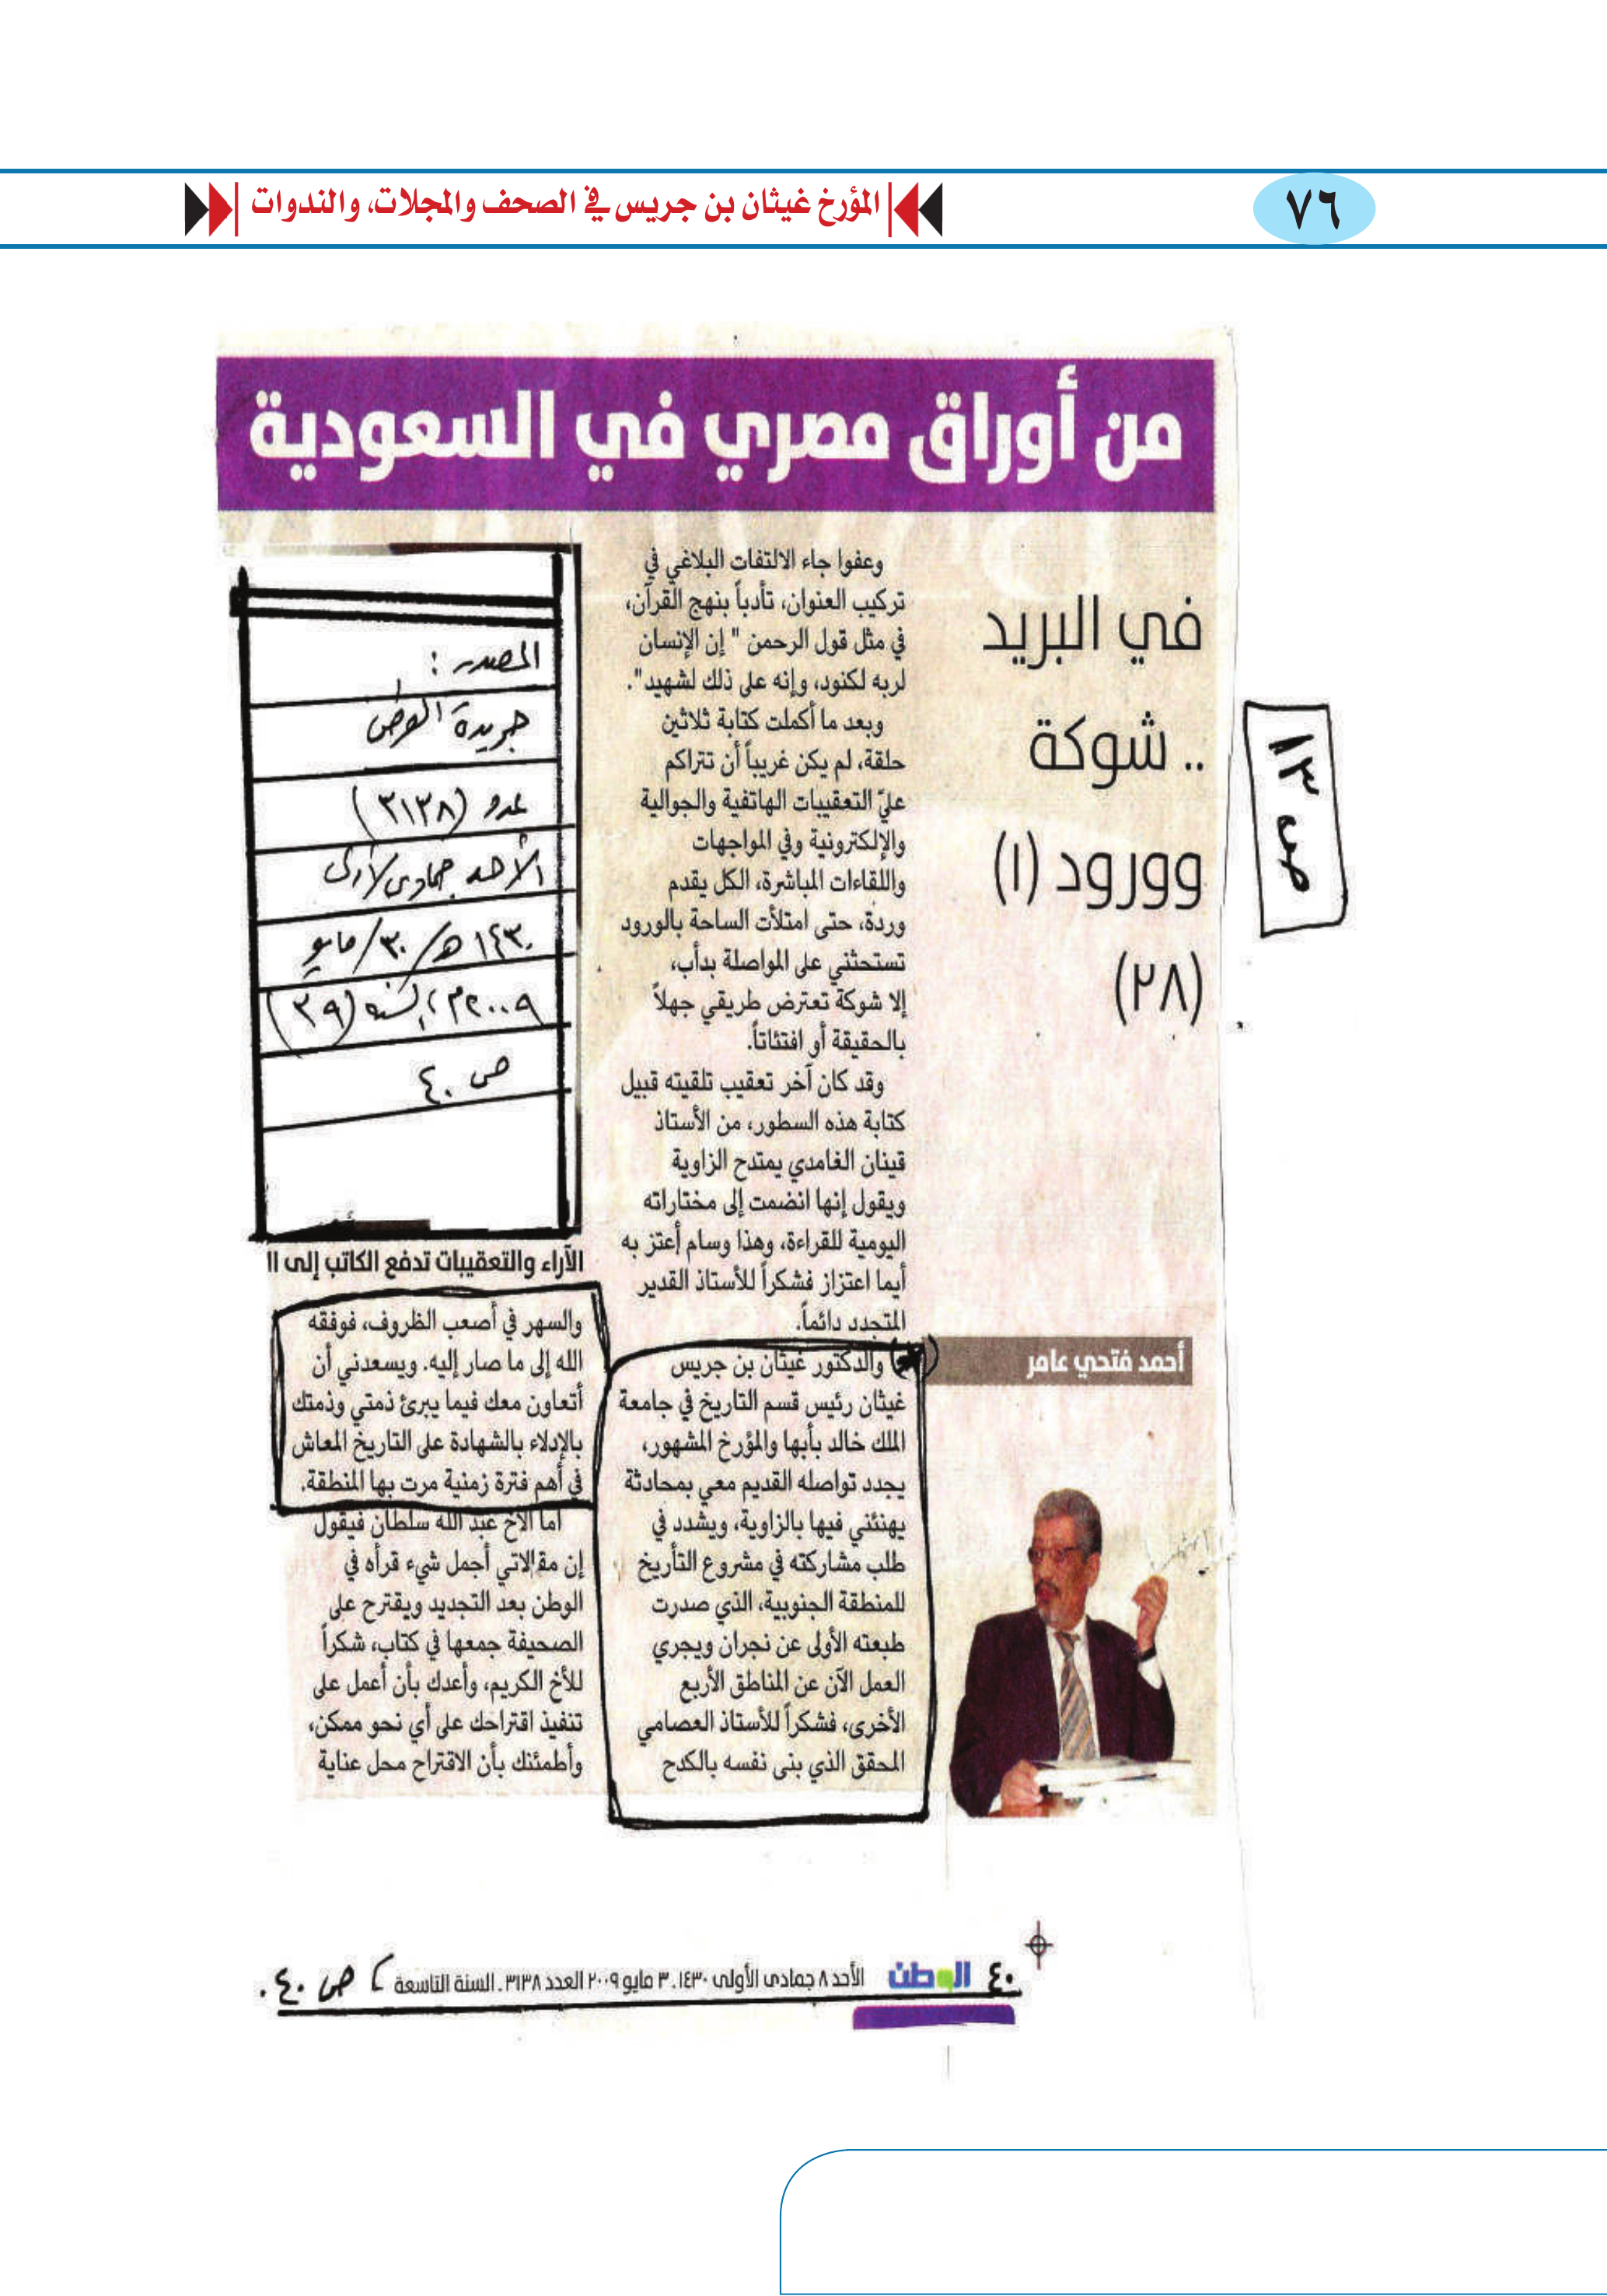 ٧٦
المؤرخ غيثان بن جريس في الصحف والمجلات، والندوات
من أوراق مصري في السعودية
في البريد
.. شوكة
وورود (١)
(٢٨)
ص ١٣
أحمد فتحي عامر
وعفوا جاء الالتفات البلاغي في
تركيب العنوان، تأدباً بنهج القرآن،
في مثل قول الرحمن " إن الإنسان
لربه لكنود، وإنه على ذلك لشهيد".
وبعد ما أكملت كتابة ثلاثين
حلقة، لم يكن غريباً أن تتراكم
عليّ التعقيبات الهاتفية والجوالية
والإلكترونية وفي المواجهات
واللقاءات المباشرة، الكل يقدم
وردة، حتى امتلأت الساحة بالورود
تستحثني على المواصلة بدأب،
إلا شوكة تعترض طريقي جهلاً
بالحقيقة أو افتئاتاً.
وقد كان آخر تعقيب تلقيته قبيل
كتابة هذه السطور، من الأستاذ
قينان الغامدي يمتدح الزاوية
ويقول إنها انضمت إلى مختاراته
اليومية للقراءة، وهذا وسام أعتز به
أيما اعتزاز فشكراً للأستاذ القدير
المتجدد دائماً.
والدكتور غيثان بن جريس
غيثان رئيس قسم التاريخ في جامعة
الملك خالد بأبها والمؤرخ المشهور،
يجدد تواصله القديم معي بمحادثة
يهنئني فيها بالزاوية، ويشدد في
طلب مشاركته في مشروع التأريخ
للمنطقة الجنوبية، الذي صدرت
طبعته الأولى عن نجران ويجري
العمل الآن عن المناطق الأربع
الأخرى، فشكراً للأستاذ العصامي
المحقق الذي بنى نفسه بالكدح
المصدر :
جريدة الوطن
عدد (٣١٣٨)
الأحد جمادى الأولى
١٤٣٠هـ/ ٣٠/ مايو
٢٠٠٩م، السنة (٣٩)
ص ٤٠
الآراء والتعقيبات تدفع الكاتب إلى
والسهر في أصعب الظروف، فوفقه
الله إلى ما صار إليه. ويسعدني أن
أتعاون معك فيما يبرئ ذمتي وذمتك
بالإدلاء بالشهادة على التاريخ المعاش
في أهم فترة زمنية مرت بها المنطقة.
أما الأخ عبد الله سلطان فيقول
إن مقالاتي أجمل شيء قرأه في
الوطن بعد التجديد ويقترح على
الصحيفة جمعها في كتاب، شكراً
للأخ الكريم، وأعدك بأن أعمل على
تنفيذ اقتراحك على أي نحو ممكن،
وأطمئنك بأن الاقتراح محل عناية
٤٠ الوطن الأحد ٨ جمادى الأولى ١٤٣٠. ٣ مايو ٢٠٠٩ العدد ٣١٣٨. السنة التاسعة ص ٤٠.